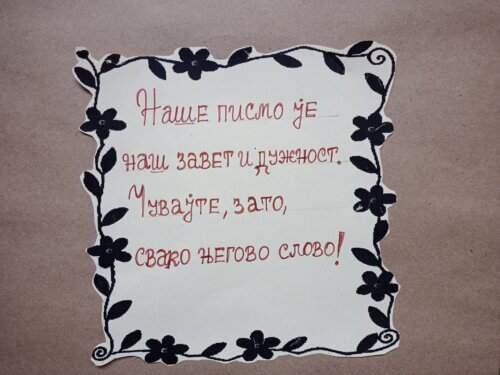 Наше писмо је
наш завет и дужност.
Чувајте, зато,
свако његово слово!